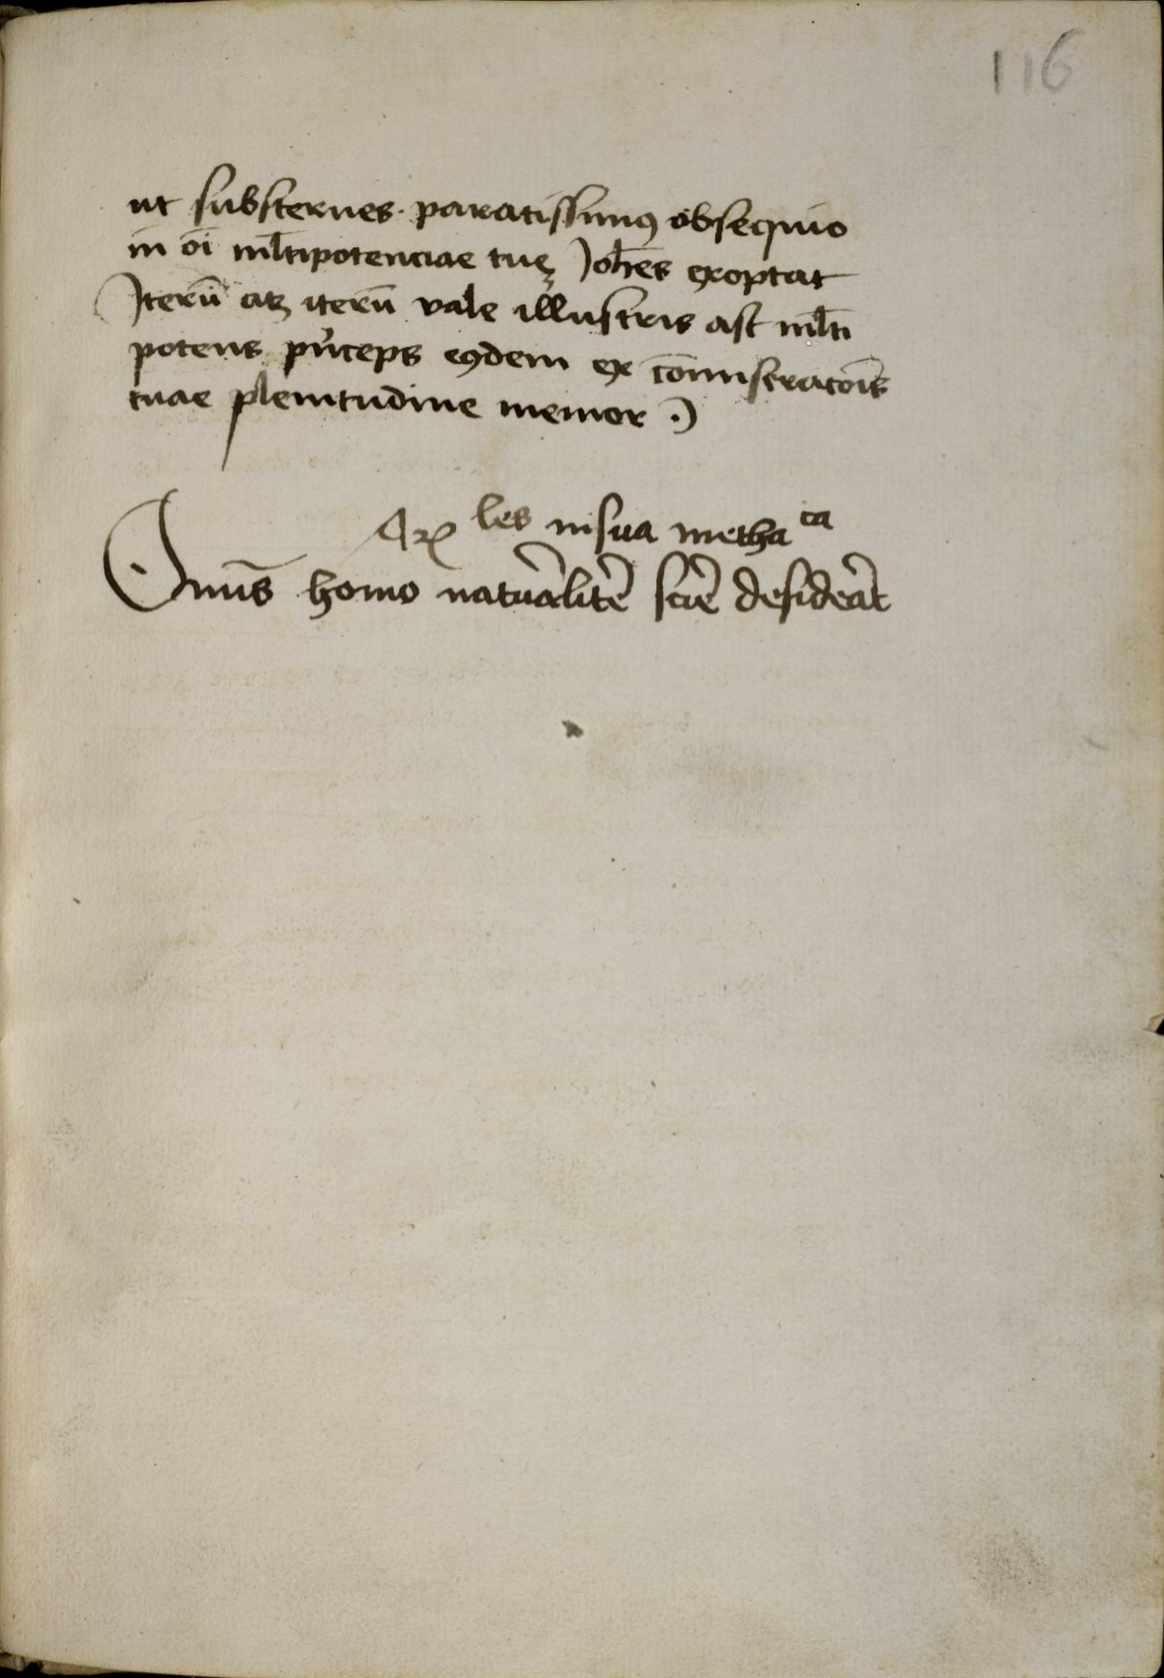 116
ut substernes. paratissimꝯ obsequio
in oı̄ ml̄tipotenciae tuę Joh̄es exoptat
Iterū atqꝫ iterū vale illustris ast ml̄ti
potens pͥnceps eꝯdem ex cōmiseratoīs
tuae plenitudine memor .)
Arꝭ les in sua metha ca
Omīs homo natur̄alit̄ sciē desiderāt